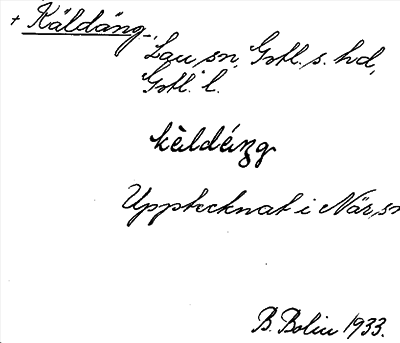 + Käldäng.
Lau sn, Gotl. s. hd,
Gotl. l.
kèldéng
Upptecknat i När, sn
B. Bolin 1933.